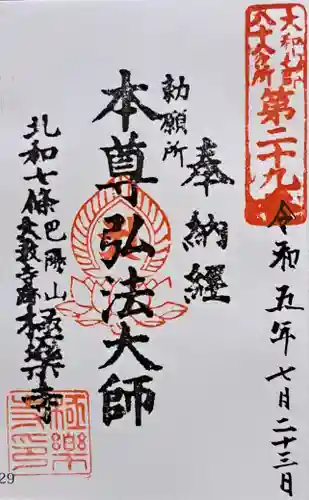 大和北部
八十八ヶ所
第二十九
令和五年七月二十三日
奉納經
勅願所
本尊弘法大師
北和七條巴陵山極樂寺
極樂
寺印
29